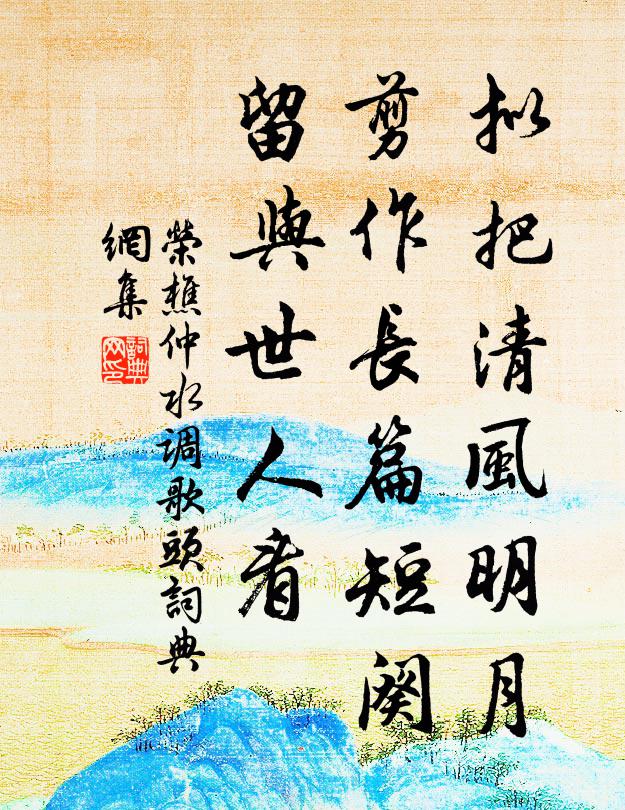 拟把清風明月
剪作長篇短阕
留與世人看
榮樵仲水调歌頭詞典
網集
詞典
网印